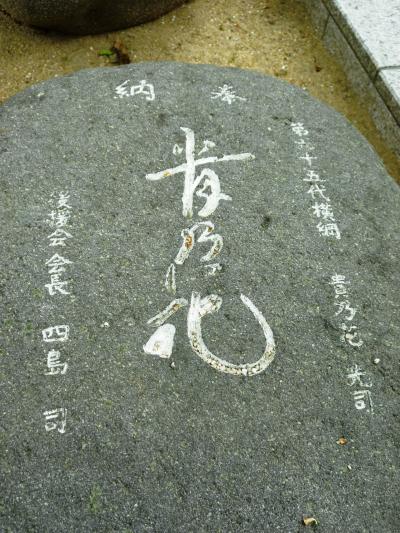 奉納
第六十五代横綱 貴乃花 光司
貴乃花
後援会会長 四島 司